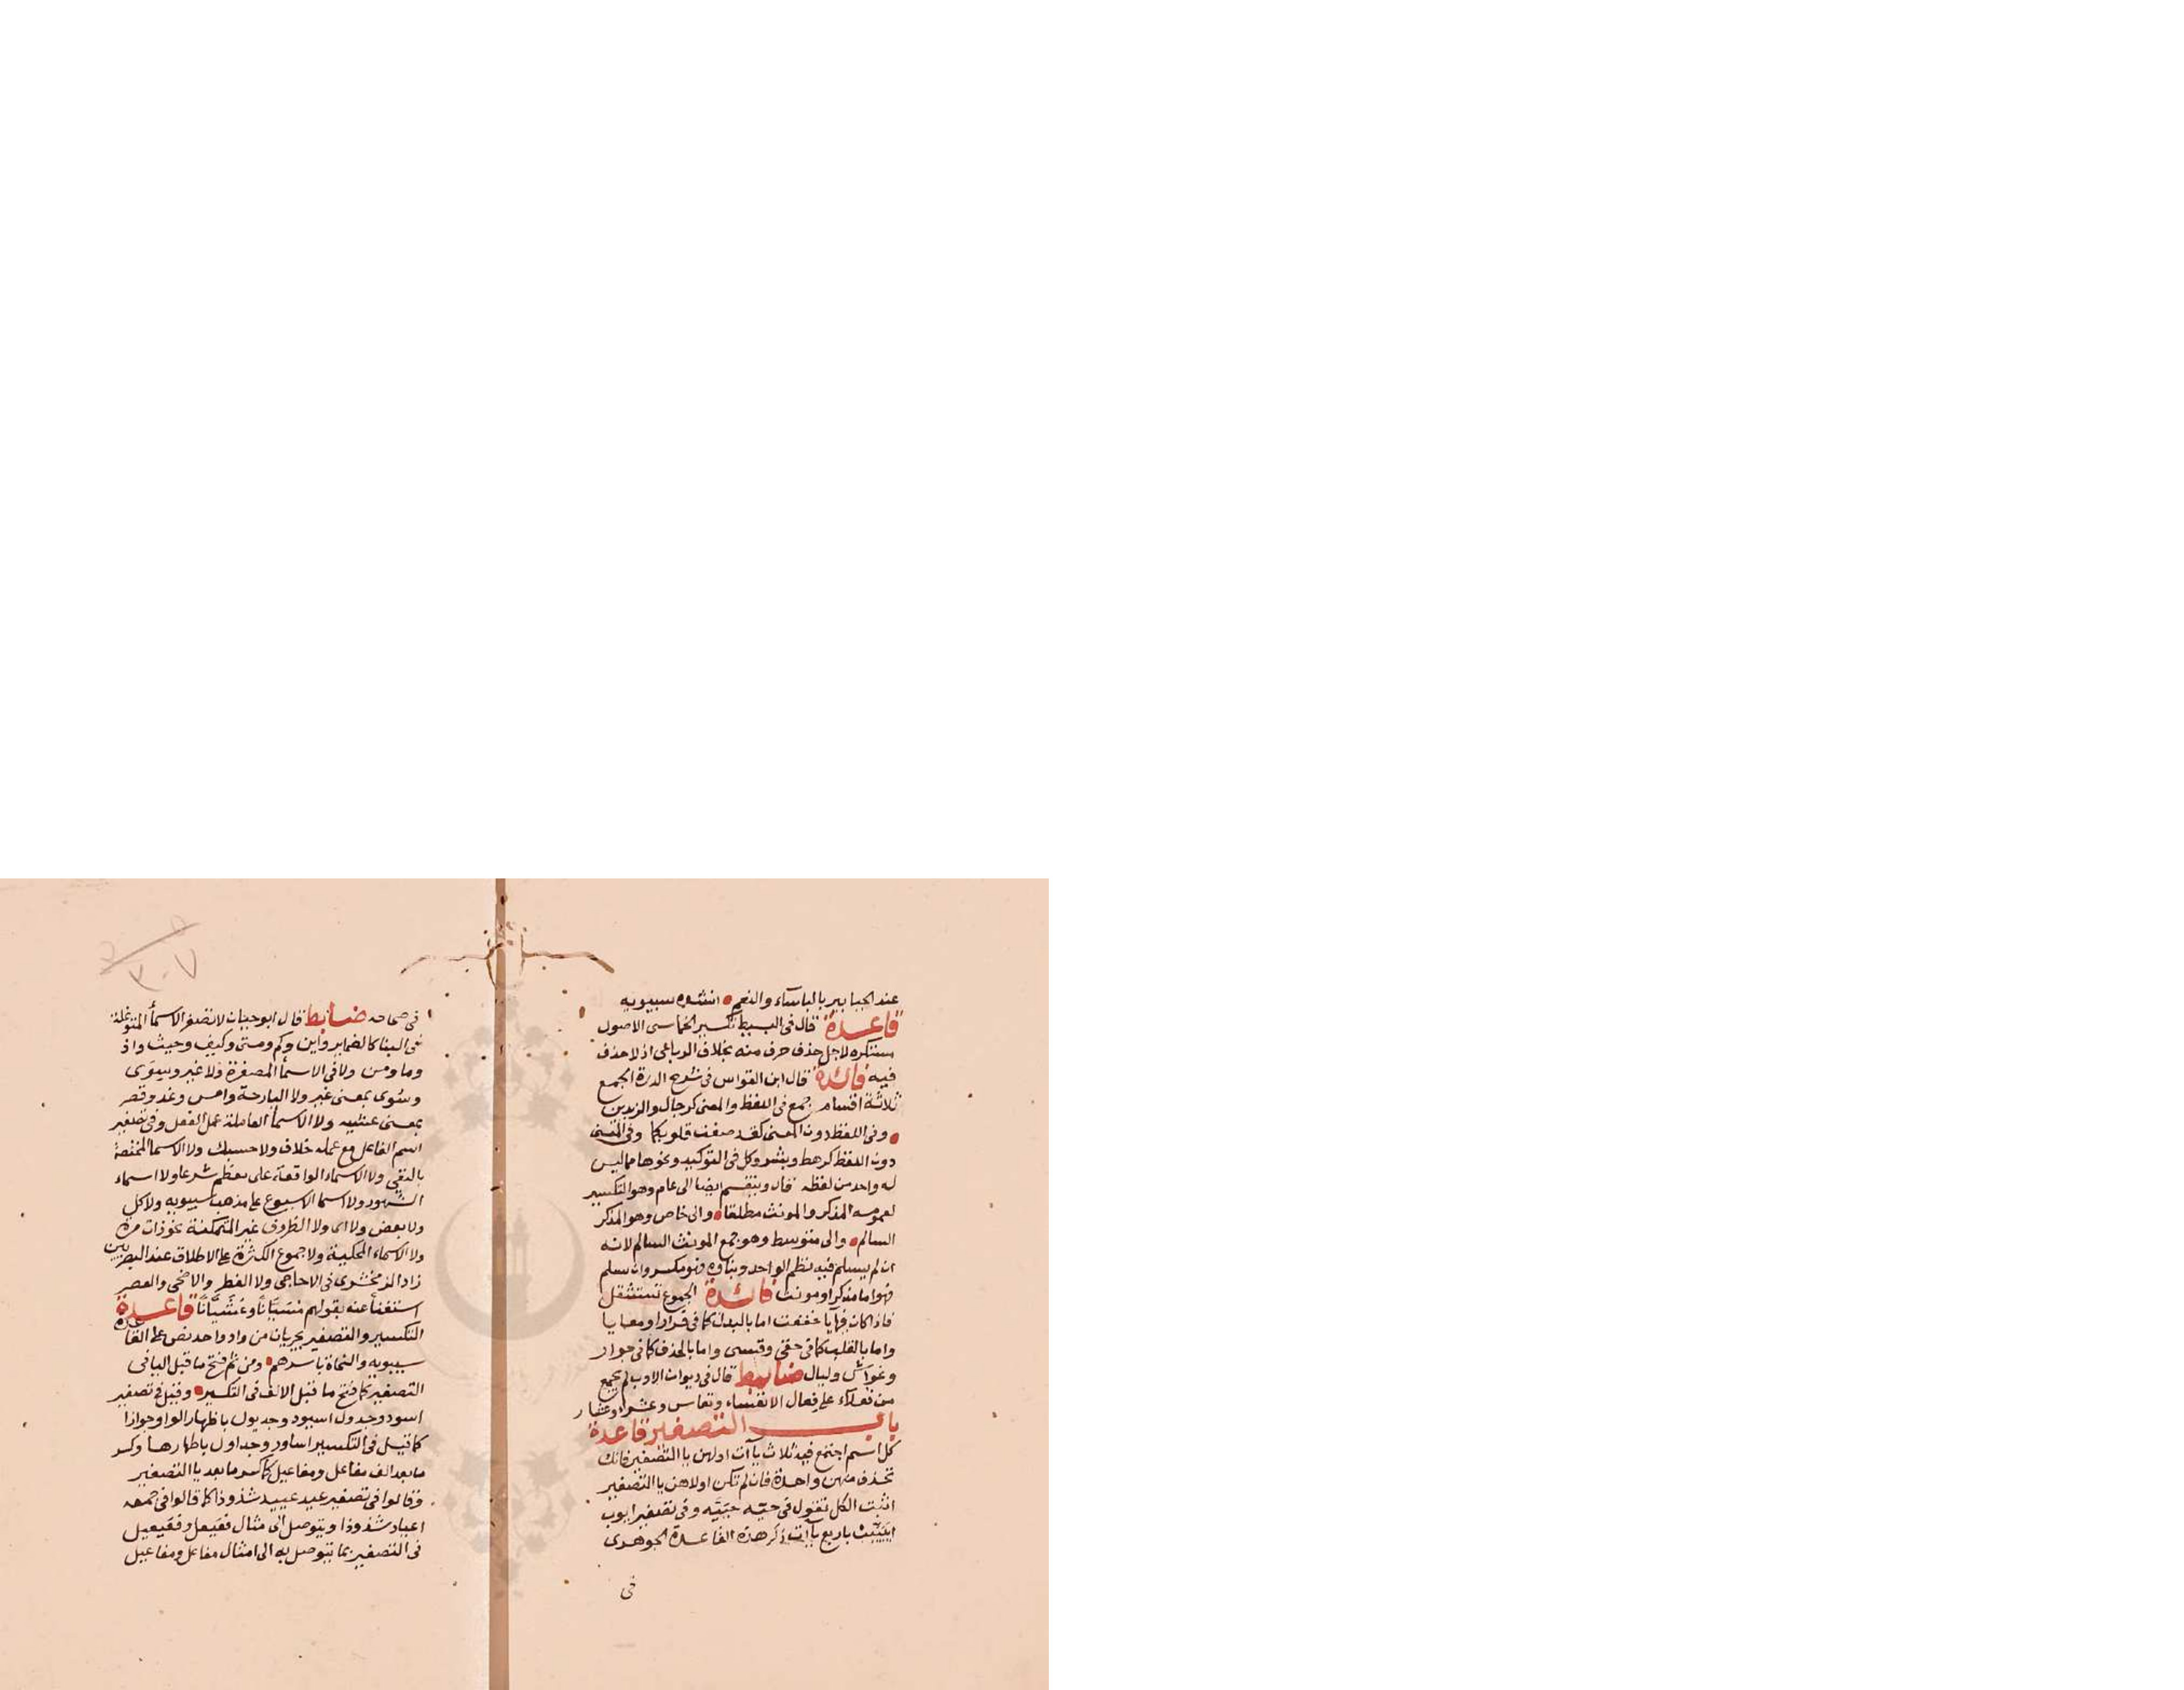 عند الجبابير بالباساء والنعم انشده سيبويه
قاعدة قال في البسيط تكسير الخماسى الاصول
مستكره لاجل حذف حرف منه بخلاف الرباعى اذ لا حذف
فيه فائدة قال ابن القواس فى شرح الدرة الجمع
ثلاثة اقسام جمع فى اللفظ والمعنى كرجال والزيدين
وفى اللفظ دون المعنى كقد صغت قلوبكما وفى المعنى
دون اللفظ كرهط وبشر وكل فى التوكيد ونحوها مما ليس
له واحد من لفظه قال وينقسم ايضا الى عام وهو التكسير
لعمومه المذكر والمونث مطلقا والى خاص وهو المذكر
السالم والى متوسط وهو جمع المونث السالم لانه
ان لم يسلم فيه نظم الواحد وبناوه فهو مكسر وان سلم
فهو اما مذكر او مونث فائدة الجموع تستثقل
فاذا كان فيها يا خففت اما بالبدل كما فى مدارا ومعايا
واما بالقلب كما فى حقى وقسى واما بالحذف كما فى جوار
وغواش وليال ضابط قال فى ديوان الادب لم يجمع
من فعلاء على فعال الا نفساء ونفاس وعشراء وعشار
باب التصغير قاعدة
كل اسم اجتمع فيه ثلاث ياآت اولهن يا التصغير فانك
تحذف منهن واحدة فان لم تكن اولاهن يا التصغير
اثبت الكل تقول فى حية حييه وفى تصغير ايوب
اييب باربع ياآت ذكر هذه القاعدة الجوهرى
فى
فى صحاحه ضابط قال ابو حيان لا تصغر الاسما المتوغلة
فى البنا كالضماير واين وكم ومتى وكيف وحيث واذ
وما ومن ولا فى الاسما المصغرة ولا غير وسوى
وسُوى بمعنى غير ولا البارحة وامس وغد وقصر
بمعنى عشيه ولا الاسما العاملة عمل الفعل وفى تصغير
اسم الفاعل مع عمله خلاف ولا حسبك ولا الاسما المختصة
بالنفى ولا الاسماء الواقعة على معظم شرعا ولا اسماء
الشهور ولا اسما الاسبوع على مذهب سيبويه ولا كل
ولا بعض ولا اى ولا الظروف غير المتمكنة نحو ذات مرة
ولا الاسماء المحكية ولا جموع الكثرة على الاطلاق عند البصريين
زاد الزمخشرى فى الاحاجى ولا الفطر والاضحى والعصر
استغناء عنه بقولهم مسيانا وعشيانا قاعدة
التكسير والتصغير يجريان من واد واحد نص على القاعدة
سيبويه والنحاة باسرهم ومن ثم فتح ما قبل اليا فى
التصغير كما فتح ما قبل الالف فى التكسير وقيل فى تصغير
اسود وجدول اسيود وجديول باظهار الواو جوازا
كما قيل فى التكسير اساود وجداول باظهارها وكسر
ما بعد الف مفاعل ومفاعيل كما كسر ما بعد يا التصغير
وقالوا فى تصغير عيد عييد شذوذا كما قالوا فى جمعه
اعياد شذوذا ويتوصل الى مثال فعيعل وفعيعيل
فى التصغير بما يتوصل به الى امثال مفاعل ومفاعيل